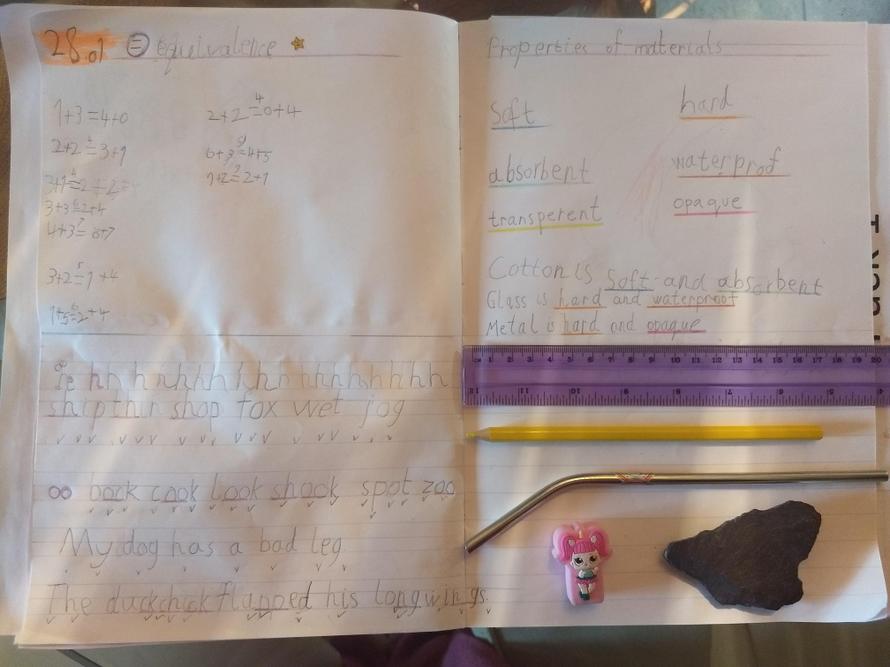 28.01 = equivalence
1+3=4+0
2+2=3+1
3+3=2+4
4+3=0+7
3+2=1+4
1+5=2+4
2+2=0+4
6+3=4+5
1+2=2+1
h h h h h h h h h h h h h h h
ship thin shop fox wet jog
oo book cook look shook spot zoo
My dog has a bad leg.
The duckchick flapped his longwings.
Properties of materials
Soft hard
absorbent waterprof
transperent opaque
Cotton is soft and absorbent
Glass is hard and waterproof
Metal is hard and opaque